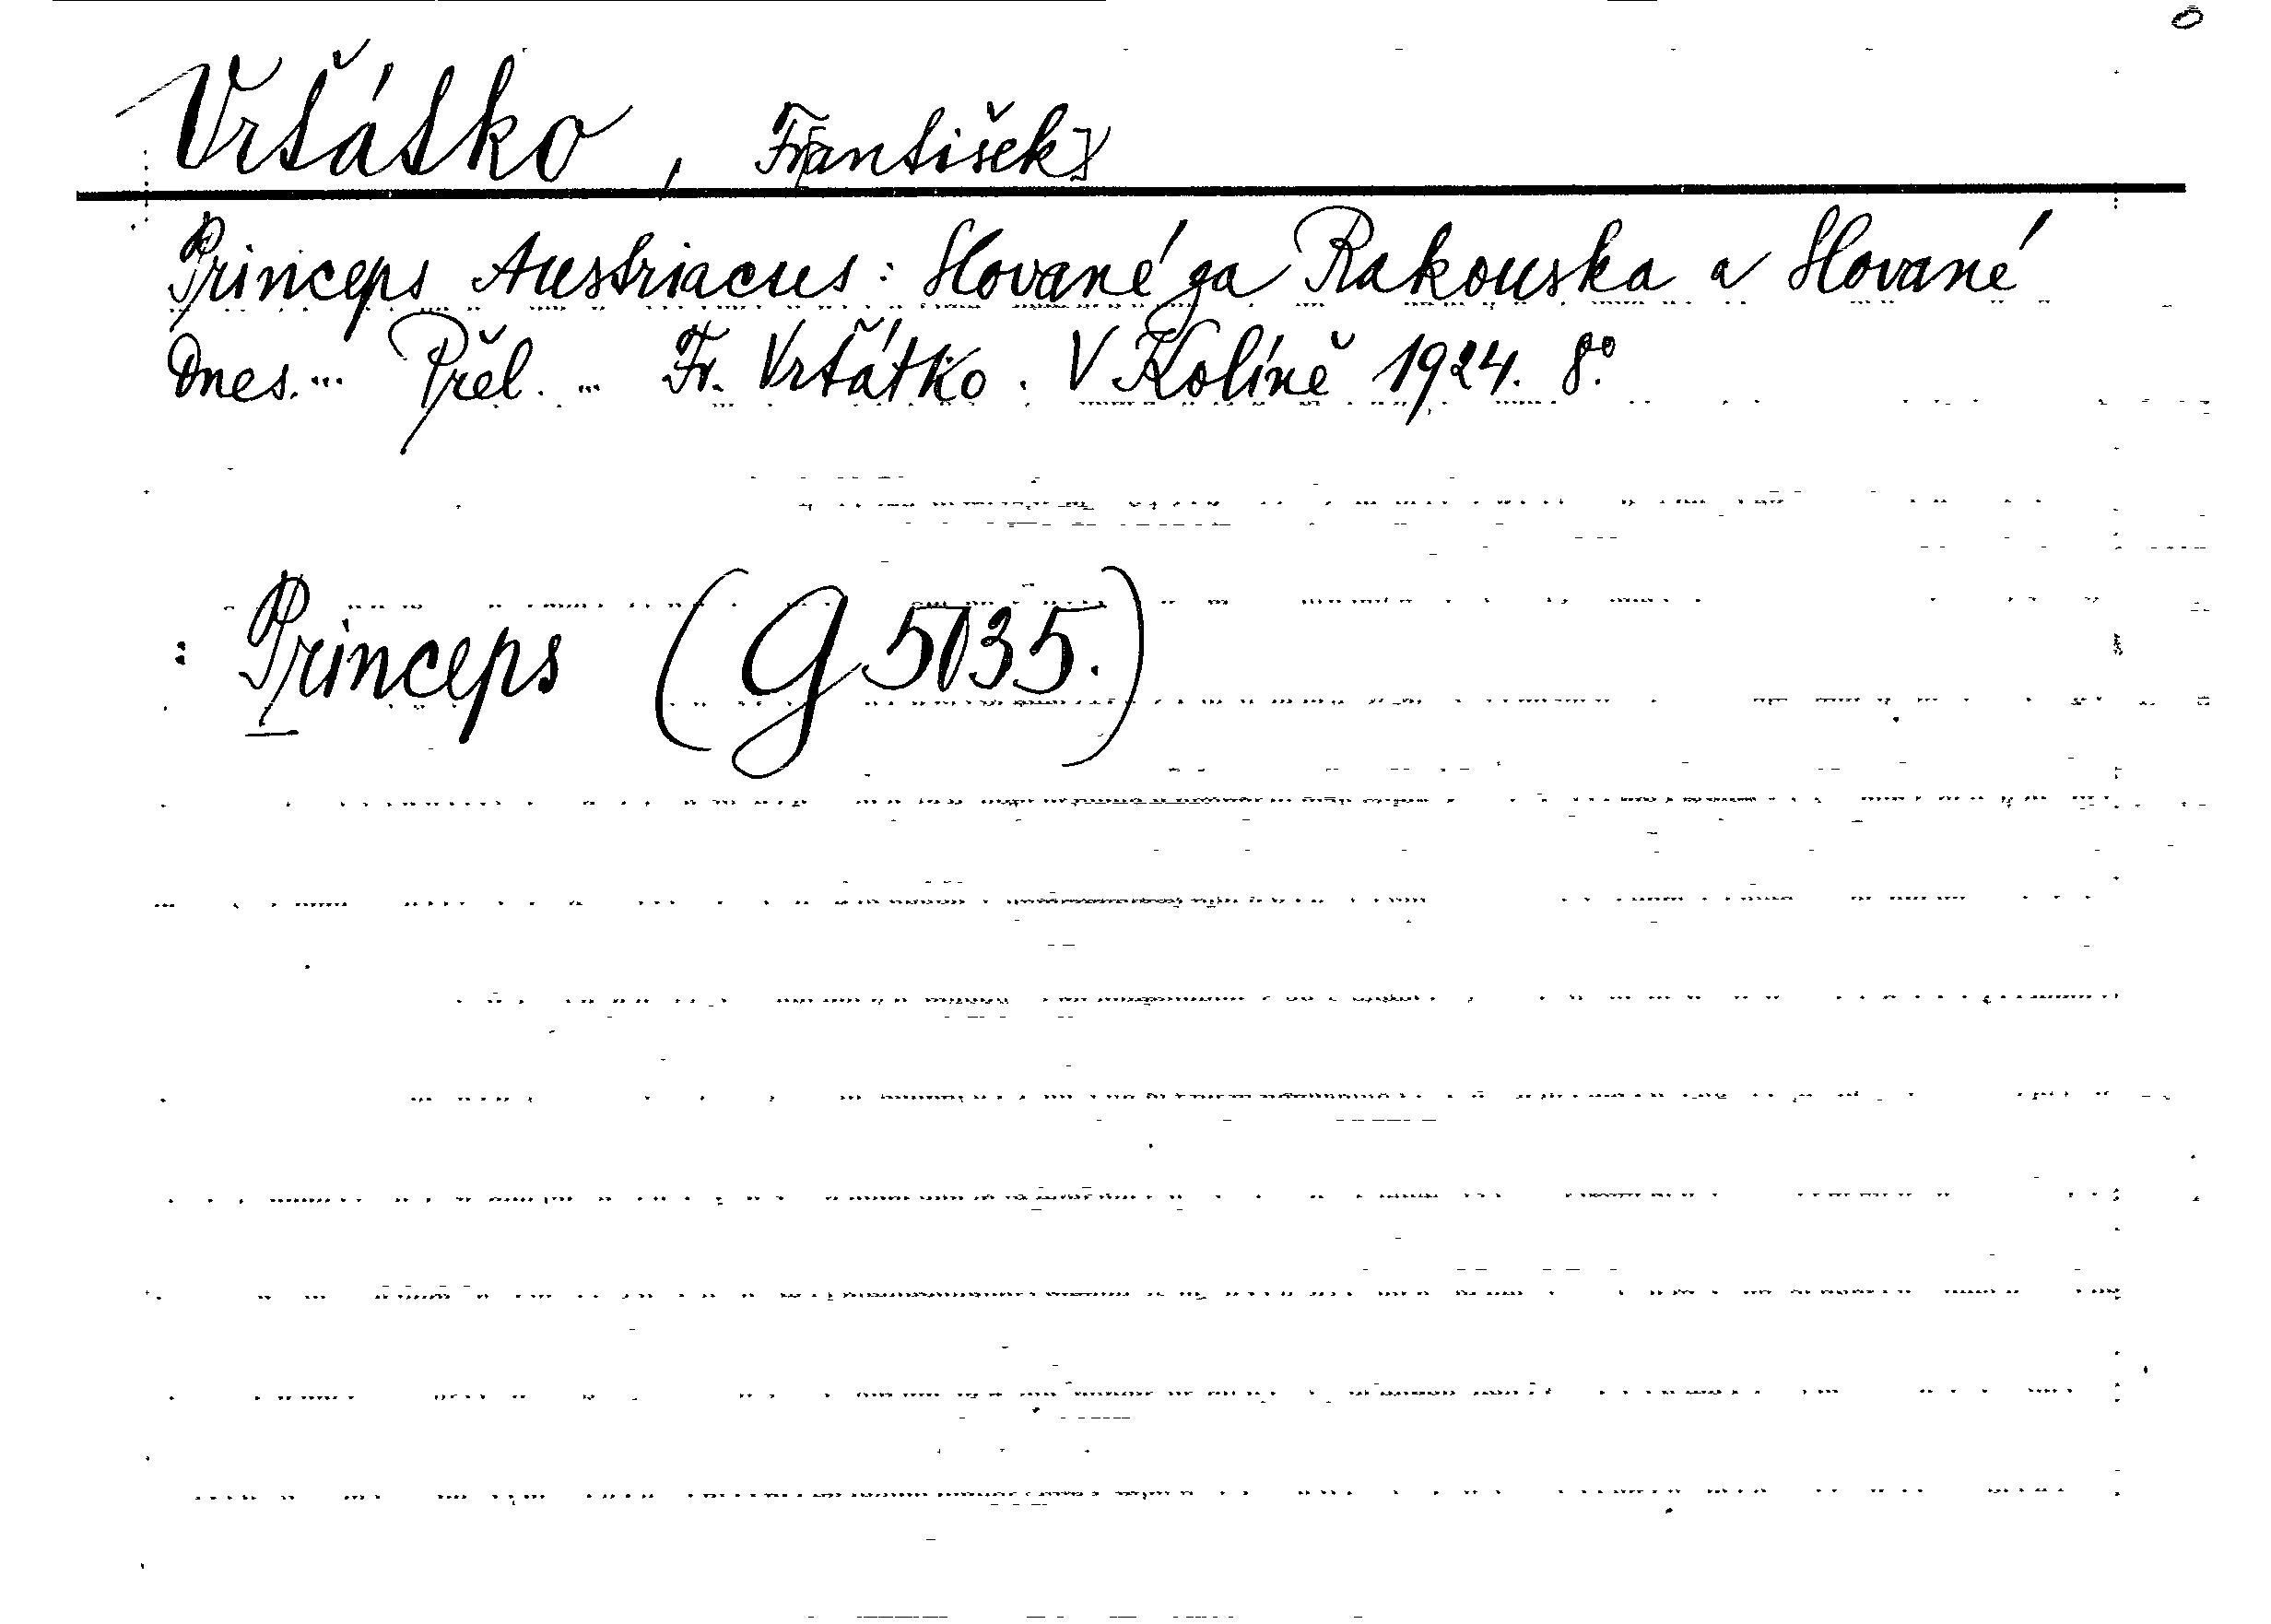 Vršátko, Fr[antišek]
Princeps Austriacus: Slované za Rakouska a Slované
dnes... Přel. ... Fr. Vršátko. V Kolíně 1924. 8°.
: Princeps (G 5135.)